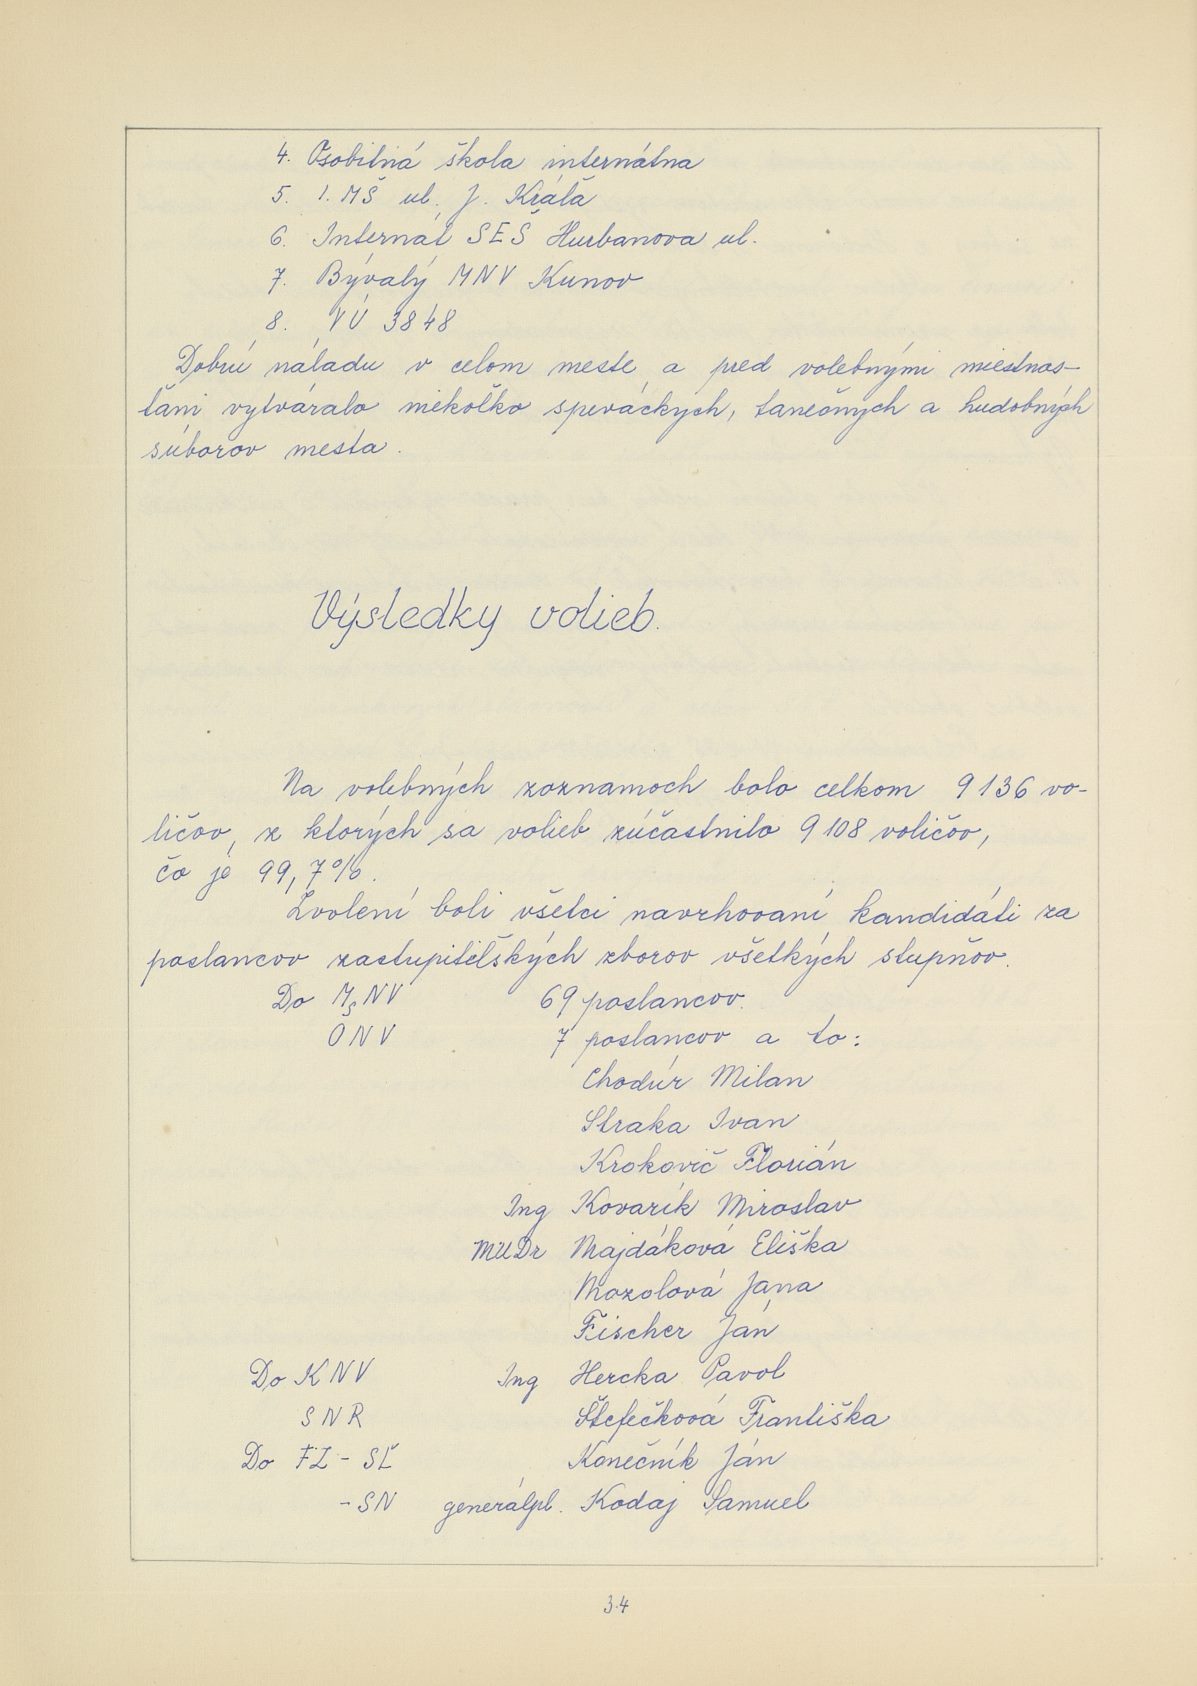 4. Osobitná škola internátna
5. I. MŠ ul. J. Kráľa
6. Internát SEŠ Hurbanova ul.
7. Bývalý MNV Kunov
8. VÚ 3848
Dobrú náladu v celom meste a pred volebnými miestnos-
ťami vytváralo niekoľko speváckých, tanečných a hudobných
súborov mesta.
Výsledky volieb.
Na volebných zoznamoch bolo celkom 9 136 vo-
ličov, z ktorých sa volieb zúčastnilo 9 108 voličov,
čo je 99,7%.
Zvolení boli všetci navrhovaní kandidáti za
poslancov zastupiteľských zborov všetkých stupňov.
Do MsNV 69 poslancov.
ONV 7 poslancov a to:
Chodúr Milan
Straka Ivan
Krokovič Florián
Ing Kovarík Miroslav
MUDr Majdáková Eliška
Mozolová Jana
Fischer Ján
Do KNV Ing Hercka Pavol
SNR Štefečková Františka
Do FZ - SĽ Konečník Ján
- SN generálpl. Kodaj Samuel
34